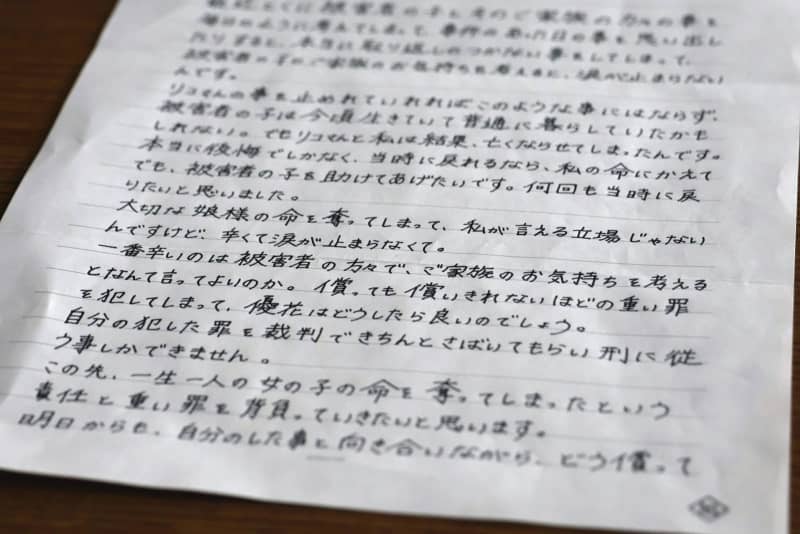 被害者の子とそのご家族の方々の事を
毎日のように考えてしまって、事件のあった日の事を思い出し
たりすると、本当に取り返しのつかない事をしてしまって、
被害者の子のご家族のお気持ちを考えると、涙が止まらない
んです。
リコさんの事を止めれていれればこのような事にはならず、
被害者の子は今頃生きていて普通に暮らしていたかも
しれない。でもリコさんと私は結果、亡くならせてしまったんです。
本当に後悔でしかなく、当時に戻れるなら、私の命にかえて
でも、被害者の子を助けてあげたいです。何回も当時に戻
りたいと思いました。
大切な娘様の命を奪ってしまって、私が言える立場じゃない
んですけど、辛くて涙が止まらなくて。
一番辛いのは被害者の方々で、ご家族のお気持ちを考える
となんて言ってよいのか。償っても償いきれないほどの重い罪
を犯してしまって、優花はどうしたら良いのでしょう。
自分の犯した罪を裁判できちんとさばいてもらい刑に従
う事しかできません。
この先、一生一人の女の子の命を奪ってしまったという
責任と重い罪を背負っていきたいと思います。
明日からも、自分のした事と向き合いながら、どう償って